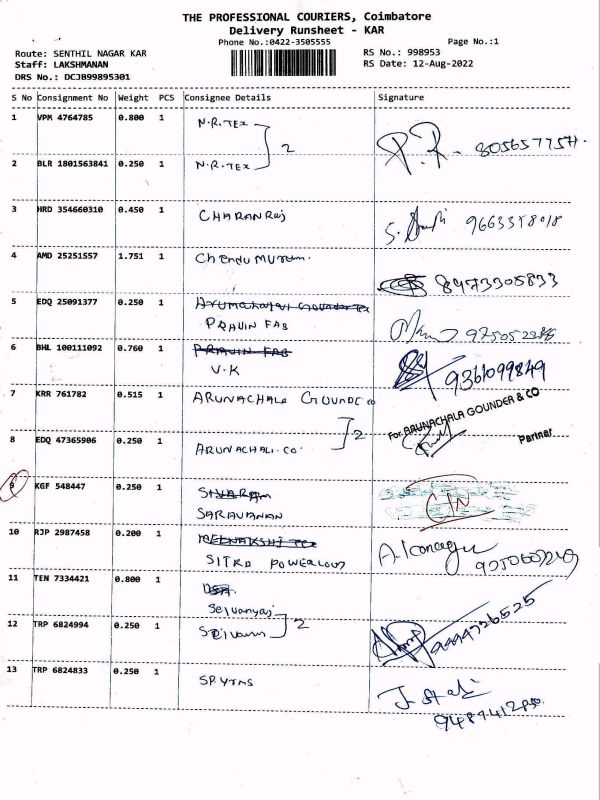 THE PROFESSIONAL COURIERS, Coimbatore
Delivery Runsheet - KAR
Phone No.:0422-3505555
Page No.:1
Route: SENTHIL NAGAR KAR
RS No.: 998953
Staff: LAKSHMANAN
RS Date: 12-Aug-2022
DRS No.: DCJ899895301
S No Consignment No Weight PCS Consignee Details Signature
1 VPM 4764785 0.800 1 N.R.TEX
2
P.R. 8056577554.
2 BLR 1801563841 0.250 1 N.R.TEX
3 HRD 354660310 0.450 1 CHARANRaj
4 AMD 25251557 1.751 1 Chendu Murugan.
8973305833
5 EDQ 25091377 0.250 1
PRAVIN FAB
6 BHL 100111092 0.760 1 PRAVIN FAB
V.K
9361099849
7 KRR 761782 0.515 1 ARUNACHALA GOUNDE co
2
For ARUNACHALA GOUNDER & CO
Partner
8 EDQ 47365906 0.250 1 ARUNACHALI.CO.
9 KGF 548447 0.250 1 SIVARAM
SARAVANAN
10 RJP 2987458 0.200 1 MEENAKSHI TEX
SITRA POWERLOOM
11 TEN 7334421 0.800 1
Selvanyaj
2
9994726525
12 TRP 6824994 0.250 1
13 TRP 6824833 0.250 1